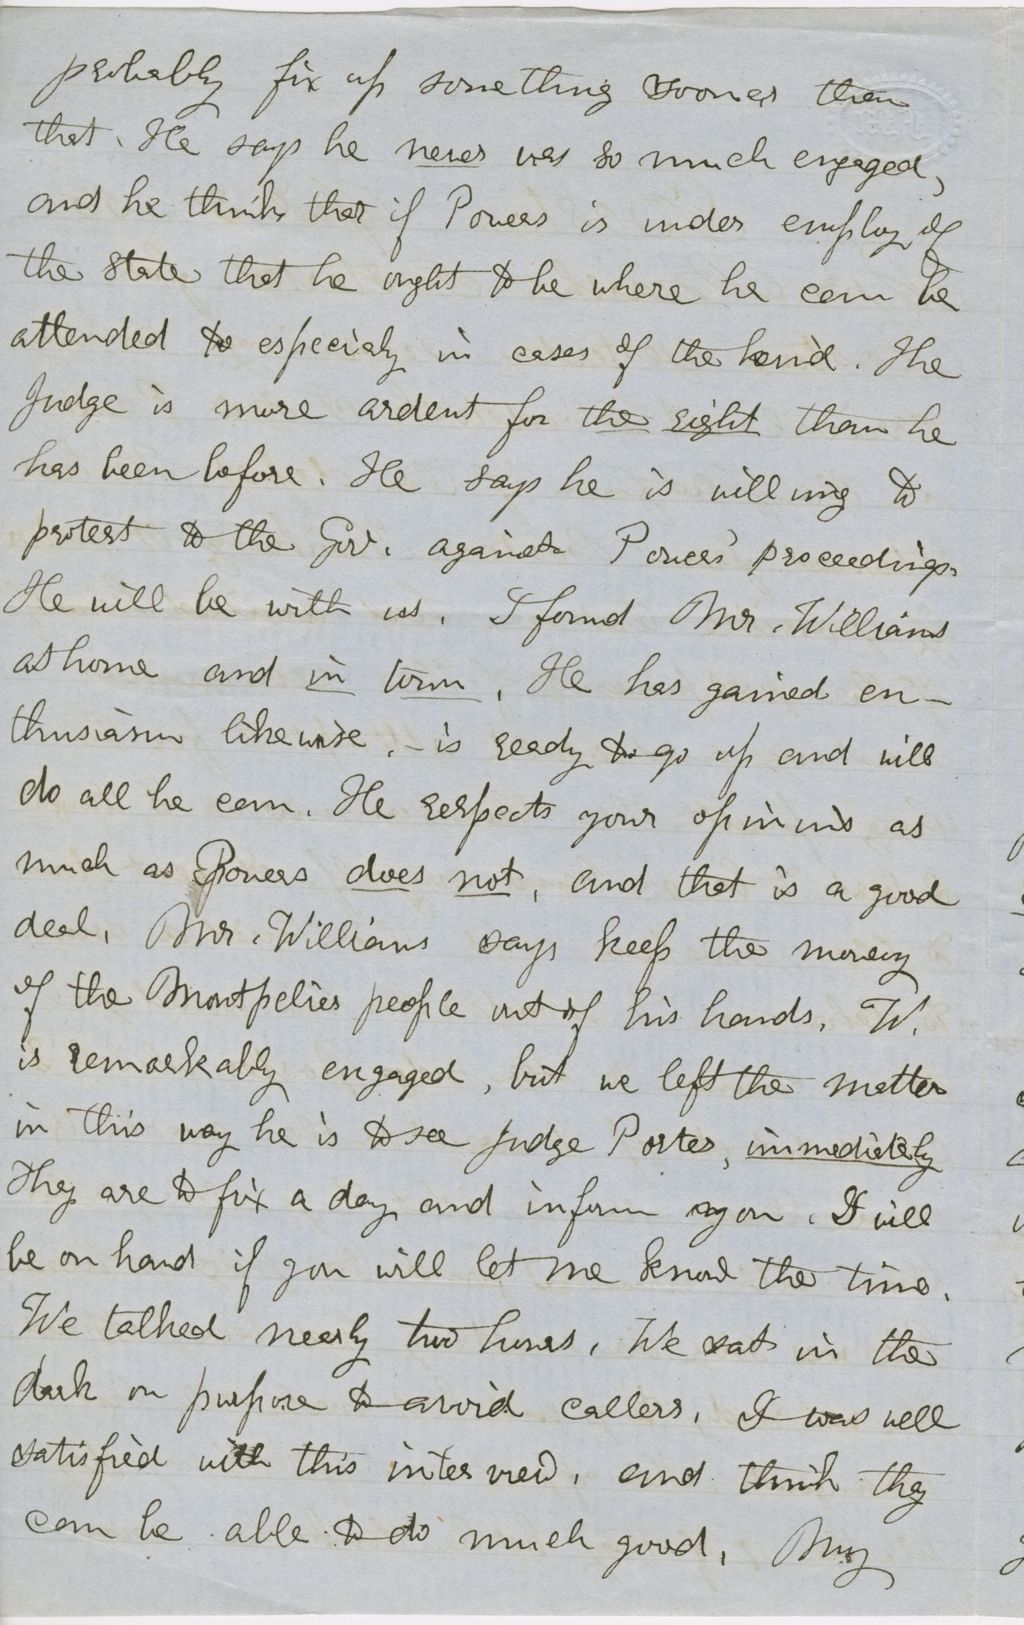 probably fix up something sooner than
that. He says he never was so much engaged,
and he thinks that if Powers is under employ of
the State that he ought to be where he can be
attended to especialy in cases of the kind. The
Judge is more ardent for the right than he
has been before. He says he is willing to
protest to the Gov. against Powers' proceedings.
He will be with us. I found Mr. Williams
at home and in town. He has gained en-
thusiasm likewise. - is ready to go up and will
do all he can. He respects your opinions as
much as Powers does not, and that is a good
deal. Mr. Williams says keep the money
of the Montpelier people out of his hands. W.
is remarkably engaged, but we left the matter
in this way he is to see Judge Porter, immediately
They are to fix a day and inform you. I will
be on hand if you will let me know the time.
We talked nearly two hours. We sat in the
dark on purpose to avoid callers. I was well
satisfied with this interview, and think they
can be able to do much good. My